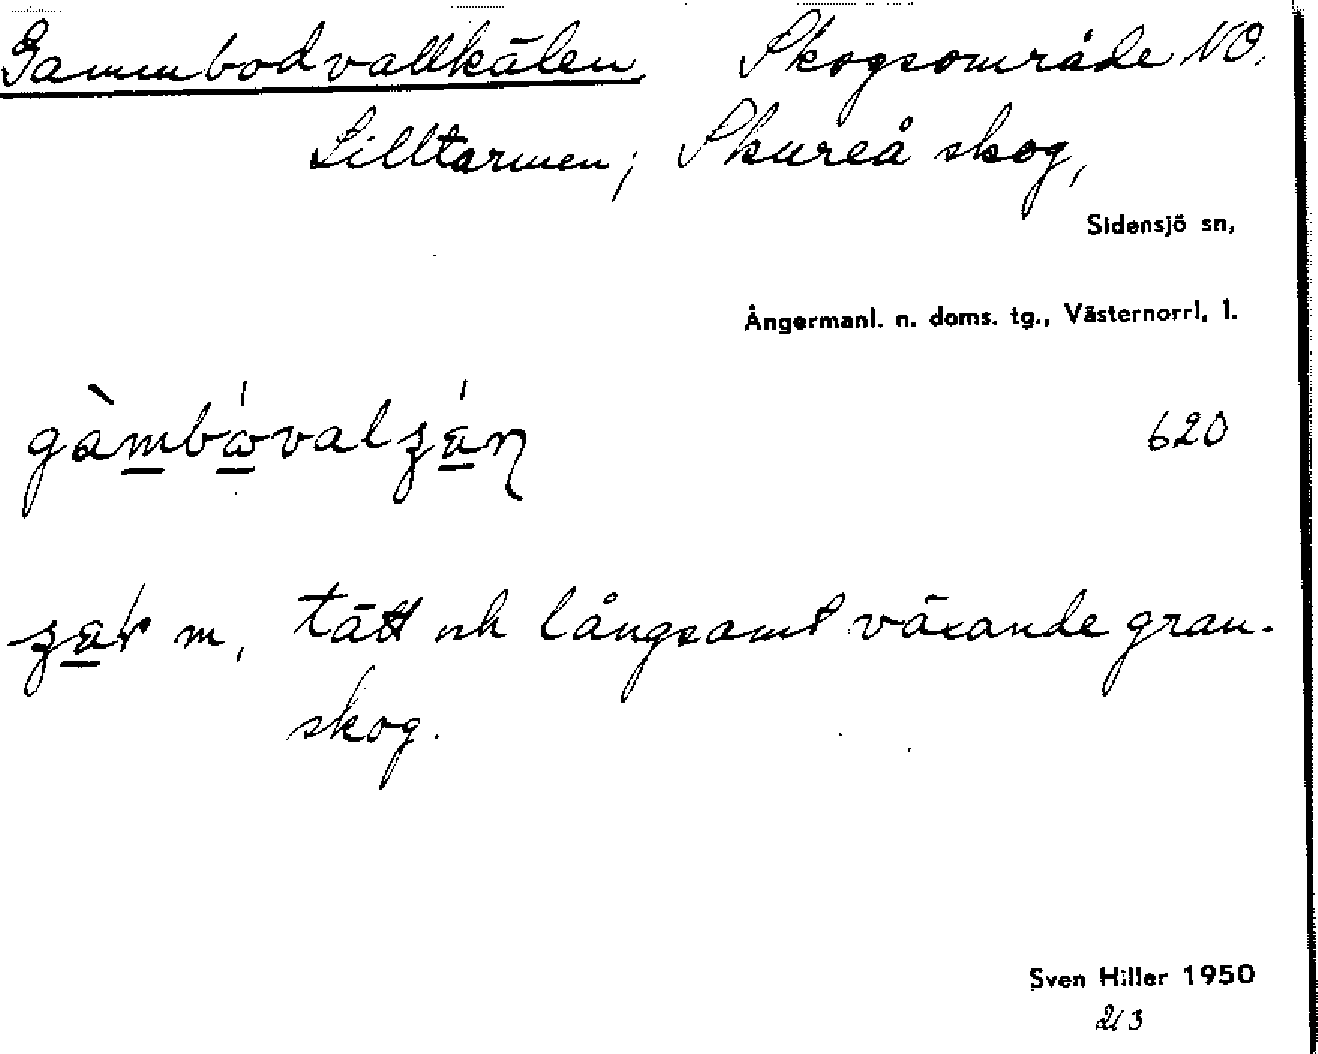 Gammbodvallkälen, Skogsområde NO.
Lilltarmen; Skureå skog,
Sidensjö sn,
Ångermanl. n. doms. tg., Västernorrl. l.
620
m, tätt och långsamt växande gran-
skog.
Sven Hiller 1950
213